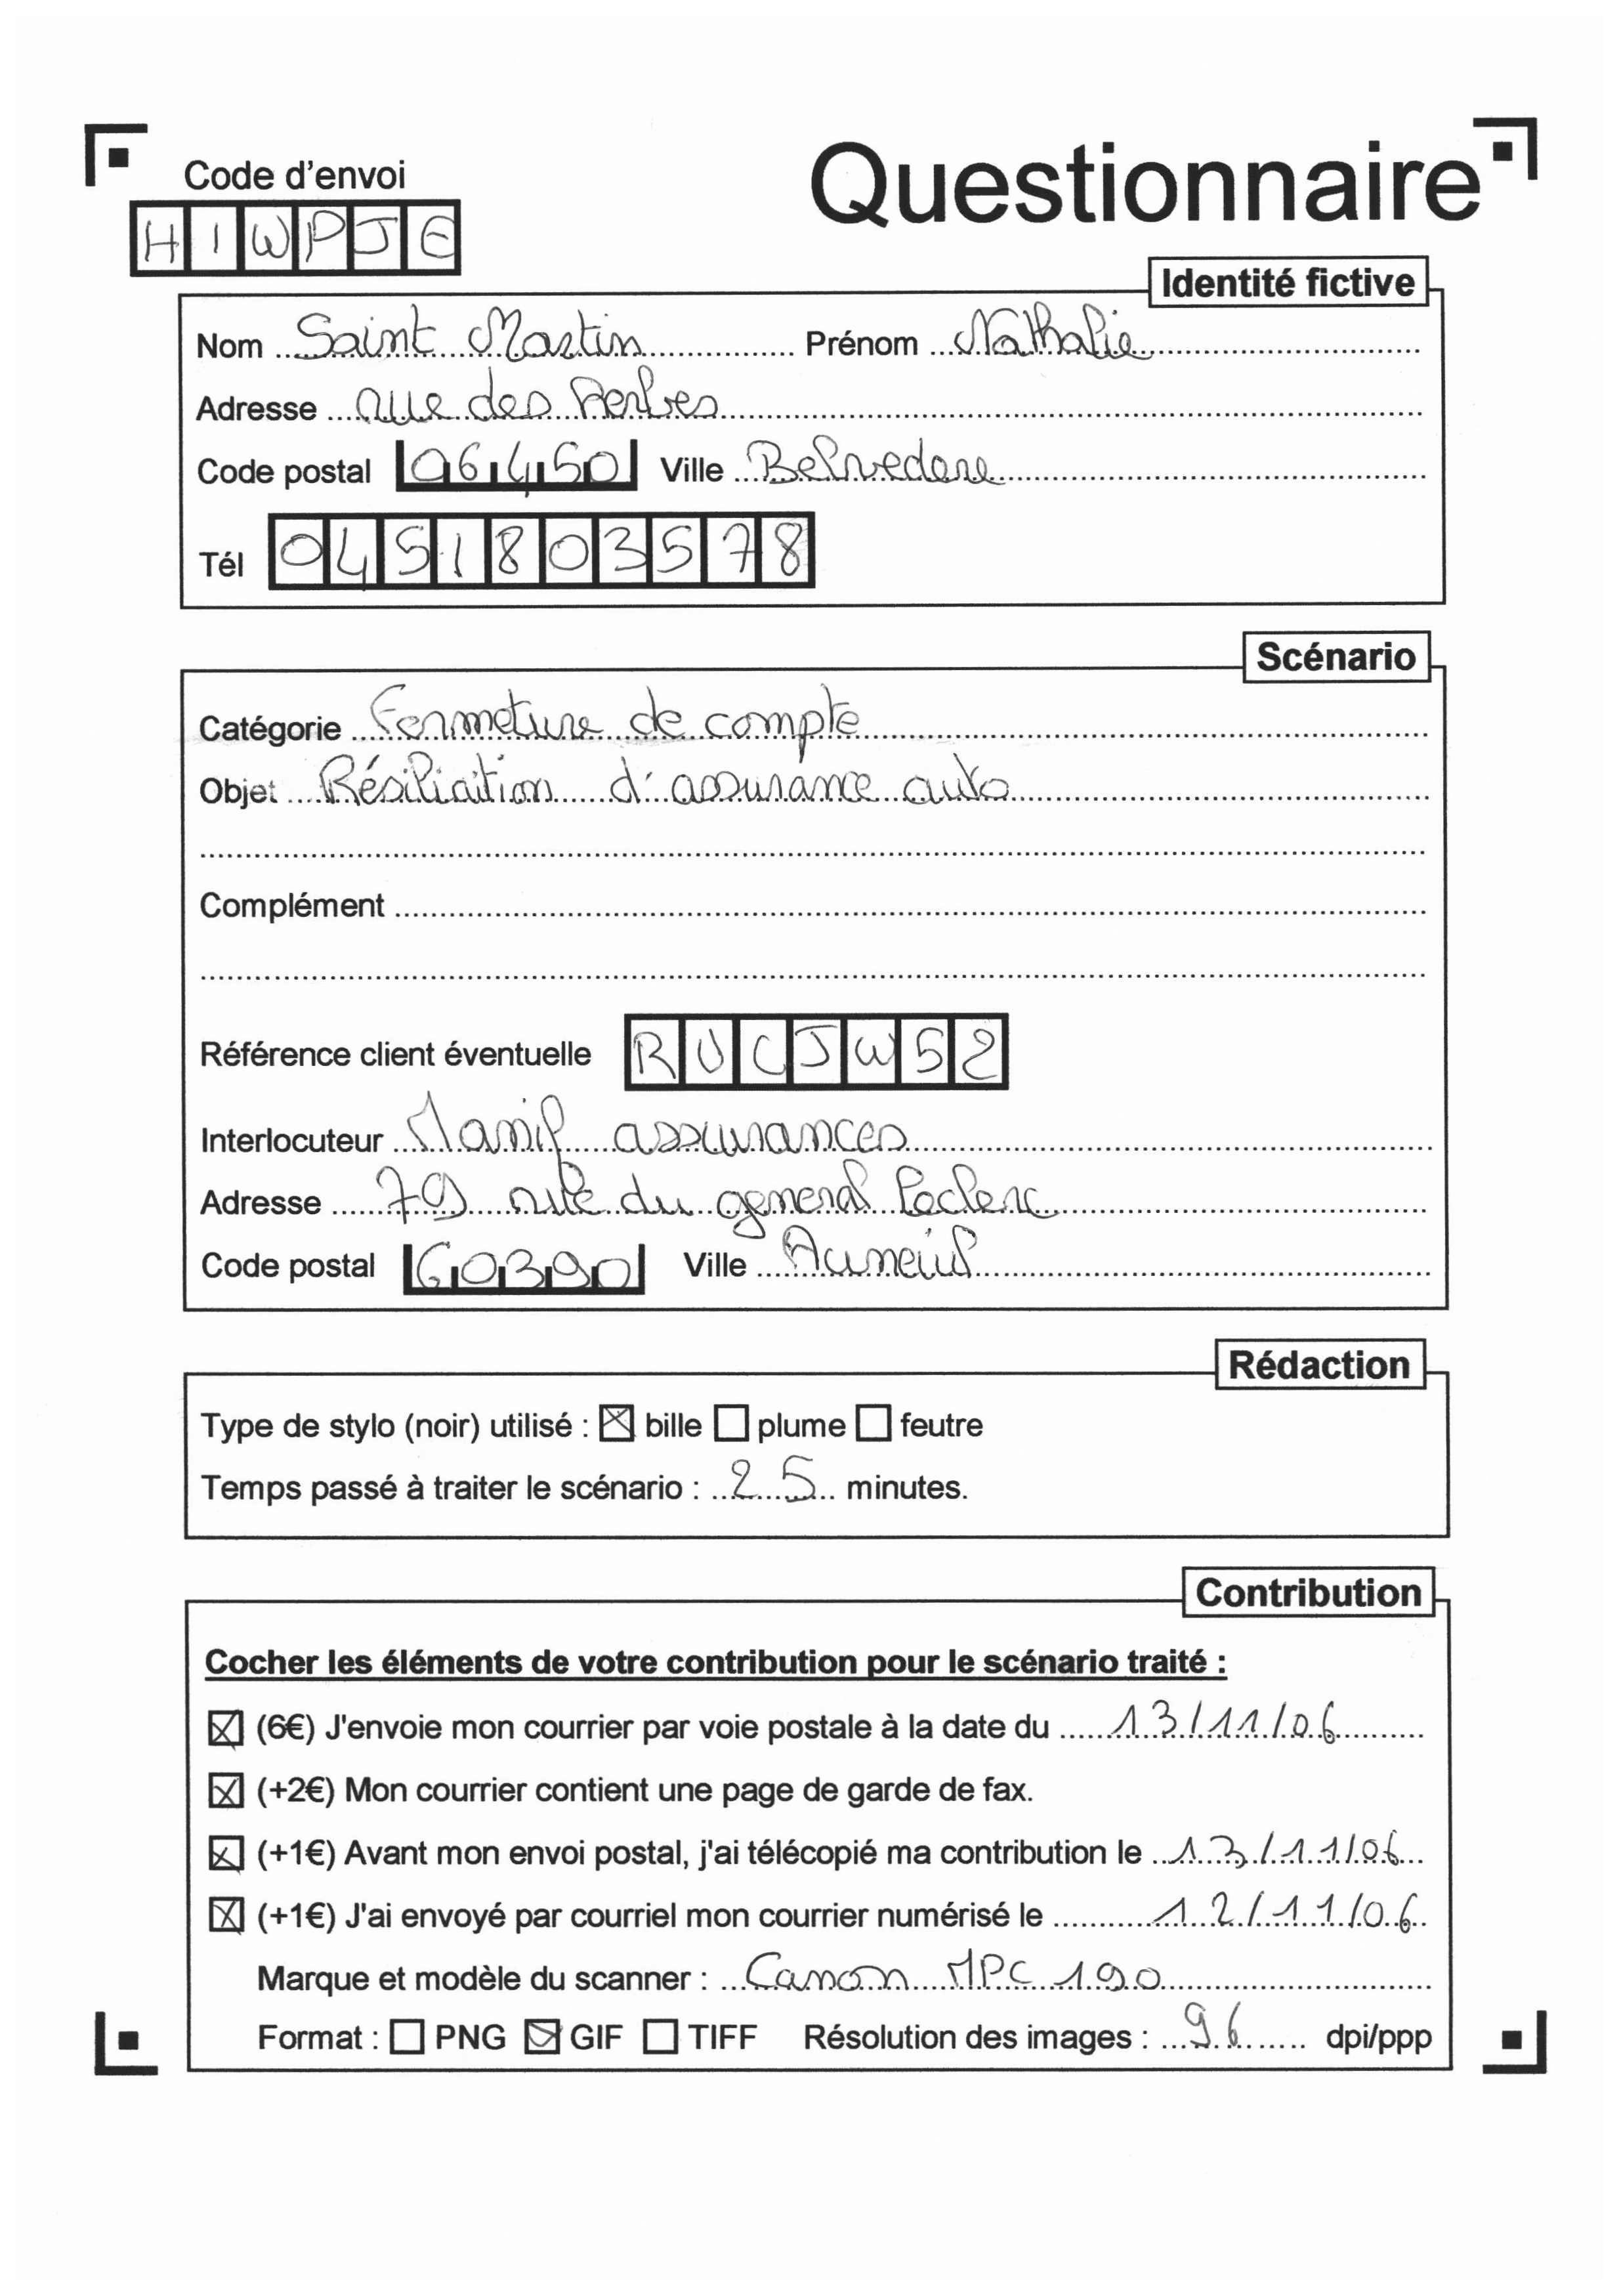 Code d'envoi
Questionnaire
HIWPJE
Identité fictive
Nom Saint Martin Prénom Nathalie
Adresse rue des
Code postal 06450 Ville Belvedere
Tél 0451803578
Scénario
Catégorie Fermeture de compte
Objet Résiliation d'assurance auto
Complément
Référence client éventuelle RUCJW52
Interlocuteur assurances
Adresse 79 rue du general leclerc
Code postal 60390 Ville Auneuil
Rédaction
Type de stylo (noir) utilisé : ☒ bille ☐ plume ☐ feutre
Temps passé à traiter le scénario : 25 minutes.
Contribution
Cocher les éléments de votre contribution pour le scénario traité :
☒ (6€) J'envoie mon courrier par voie postale à la date du 13/11/06
☒ (+2€) Mon courrier contient une page de garde de fax.
☒ (+1€) Avant mon envoi postal, j'ai télécopié ma contribution le 13/11/06
☒ (+1€) J'ai envoyé par courriel mon courrier numérisé le 12/11/06
Marque et modèle du scanner : Canon MPC 190
Format : ☐ PNG ☒ GIF ☐ TIFF Résolution des images : 96 dpi/ppp